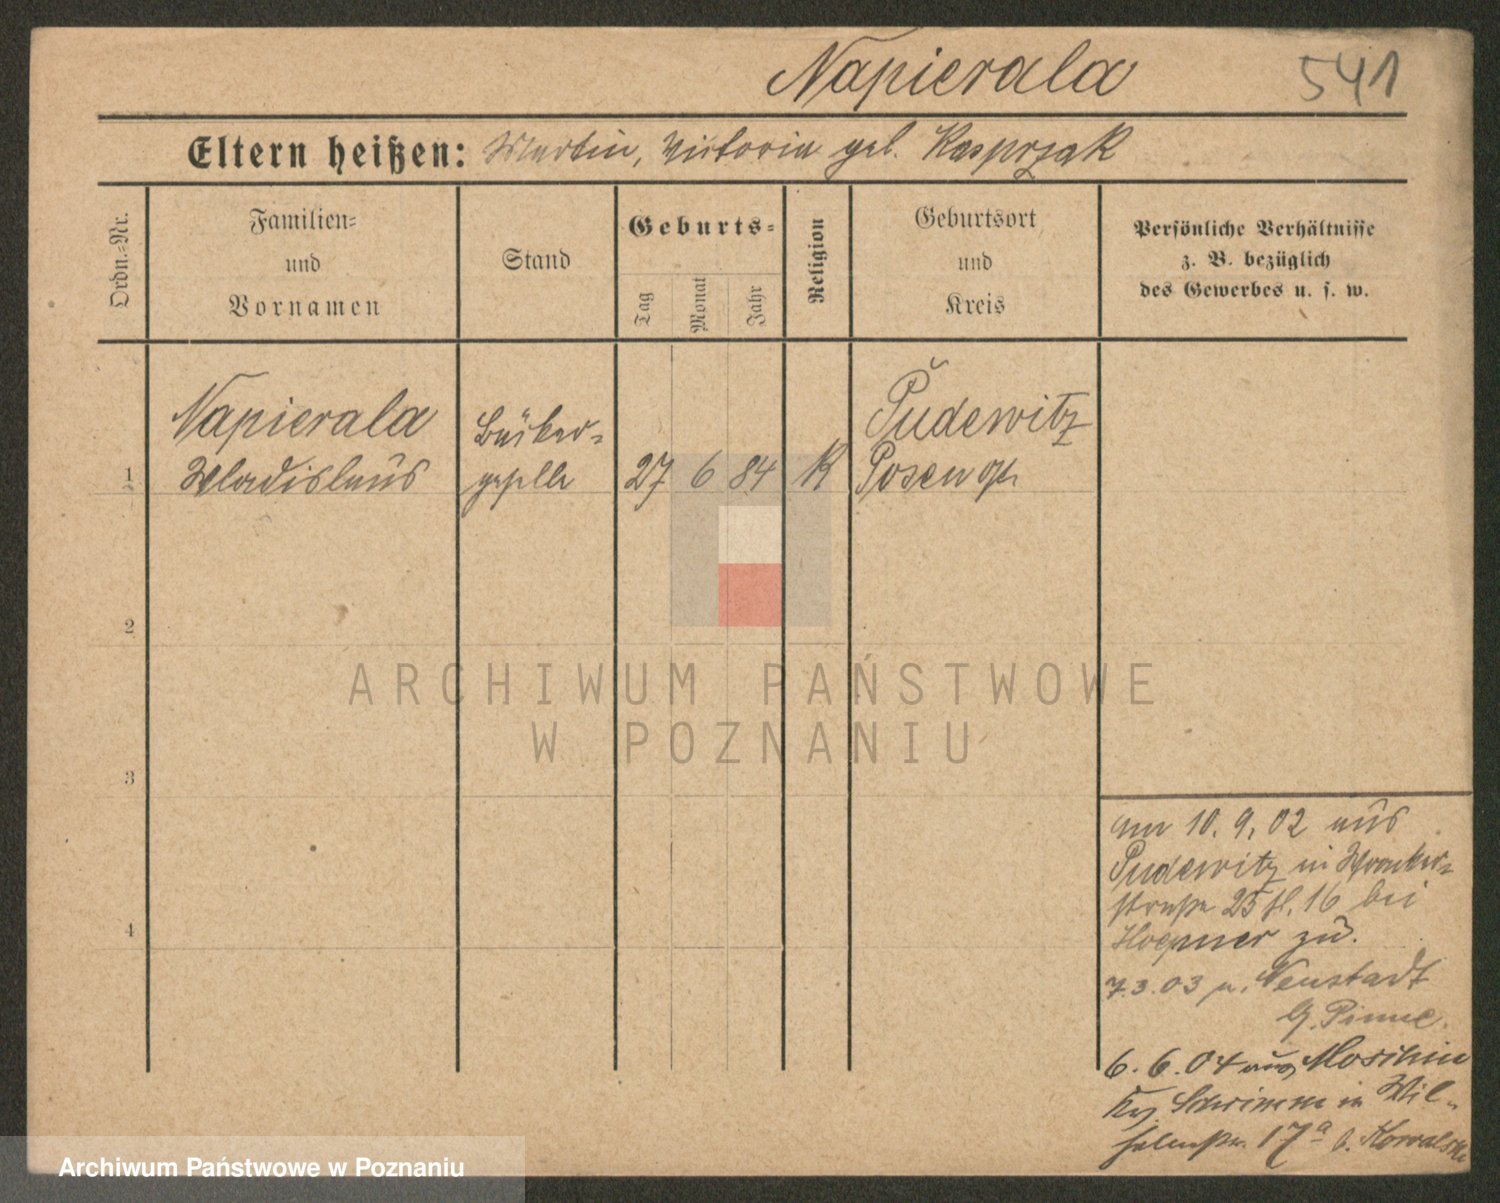 Napierala 541
Eltern heißen: Martin, Victoria geb. Kasprzak
Ordn.-Nr.
Familien-
und
Vornamen
Stand
Geburts-
Tag
Monat
Jahr
Religion
Geburtsort
und
Kreis
Persönliche Verhältnisse
z. B. bezüglich
des Gewerbes u. s. w.
1
Napierala
Wladislaus
Bäcker-
geselle
27 6 84 K
Pudewitz
Posen
2
3
4
am 10. 9. 02 aus
Pudewitz in Wronker-
straße 25 16 bei
Hoepner zu.
7.3.03 n. Neustadt
Pinne.
6. 6. 04 aus Moschin
Schrimm in Wil-
helmstr. 17a b. Kowalski
ARCHIWUM PAŃSTWOWE
W POZNANIU
Archiwum Państwowe w Poznaniu